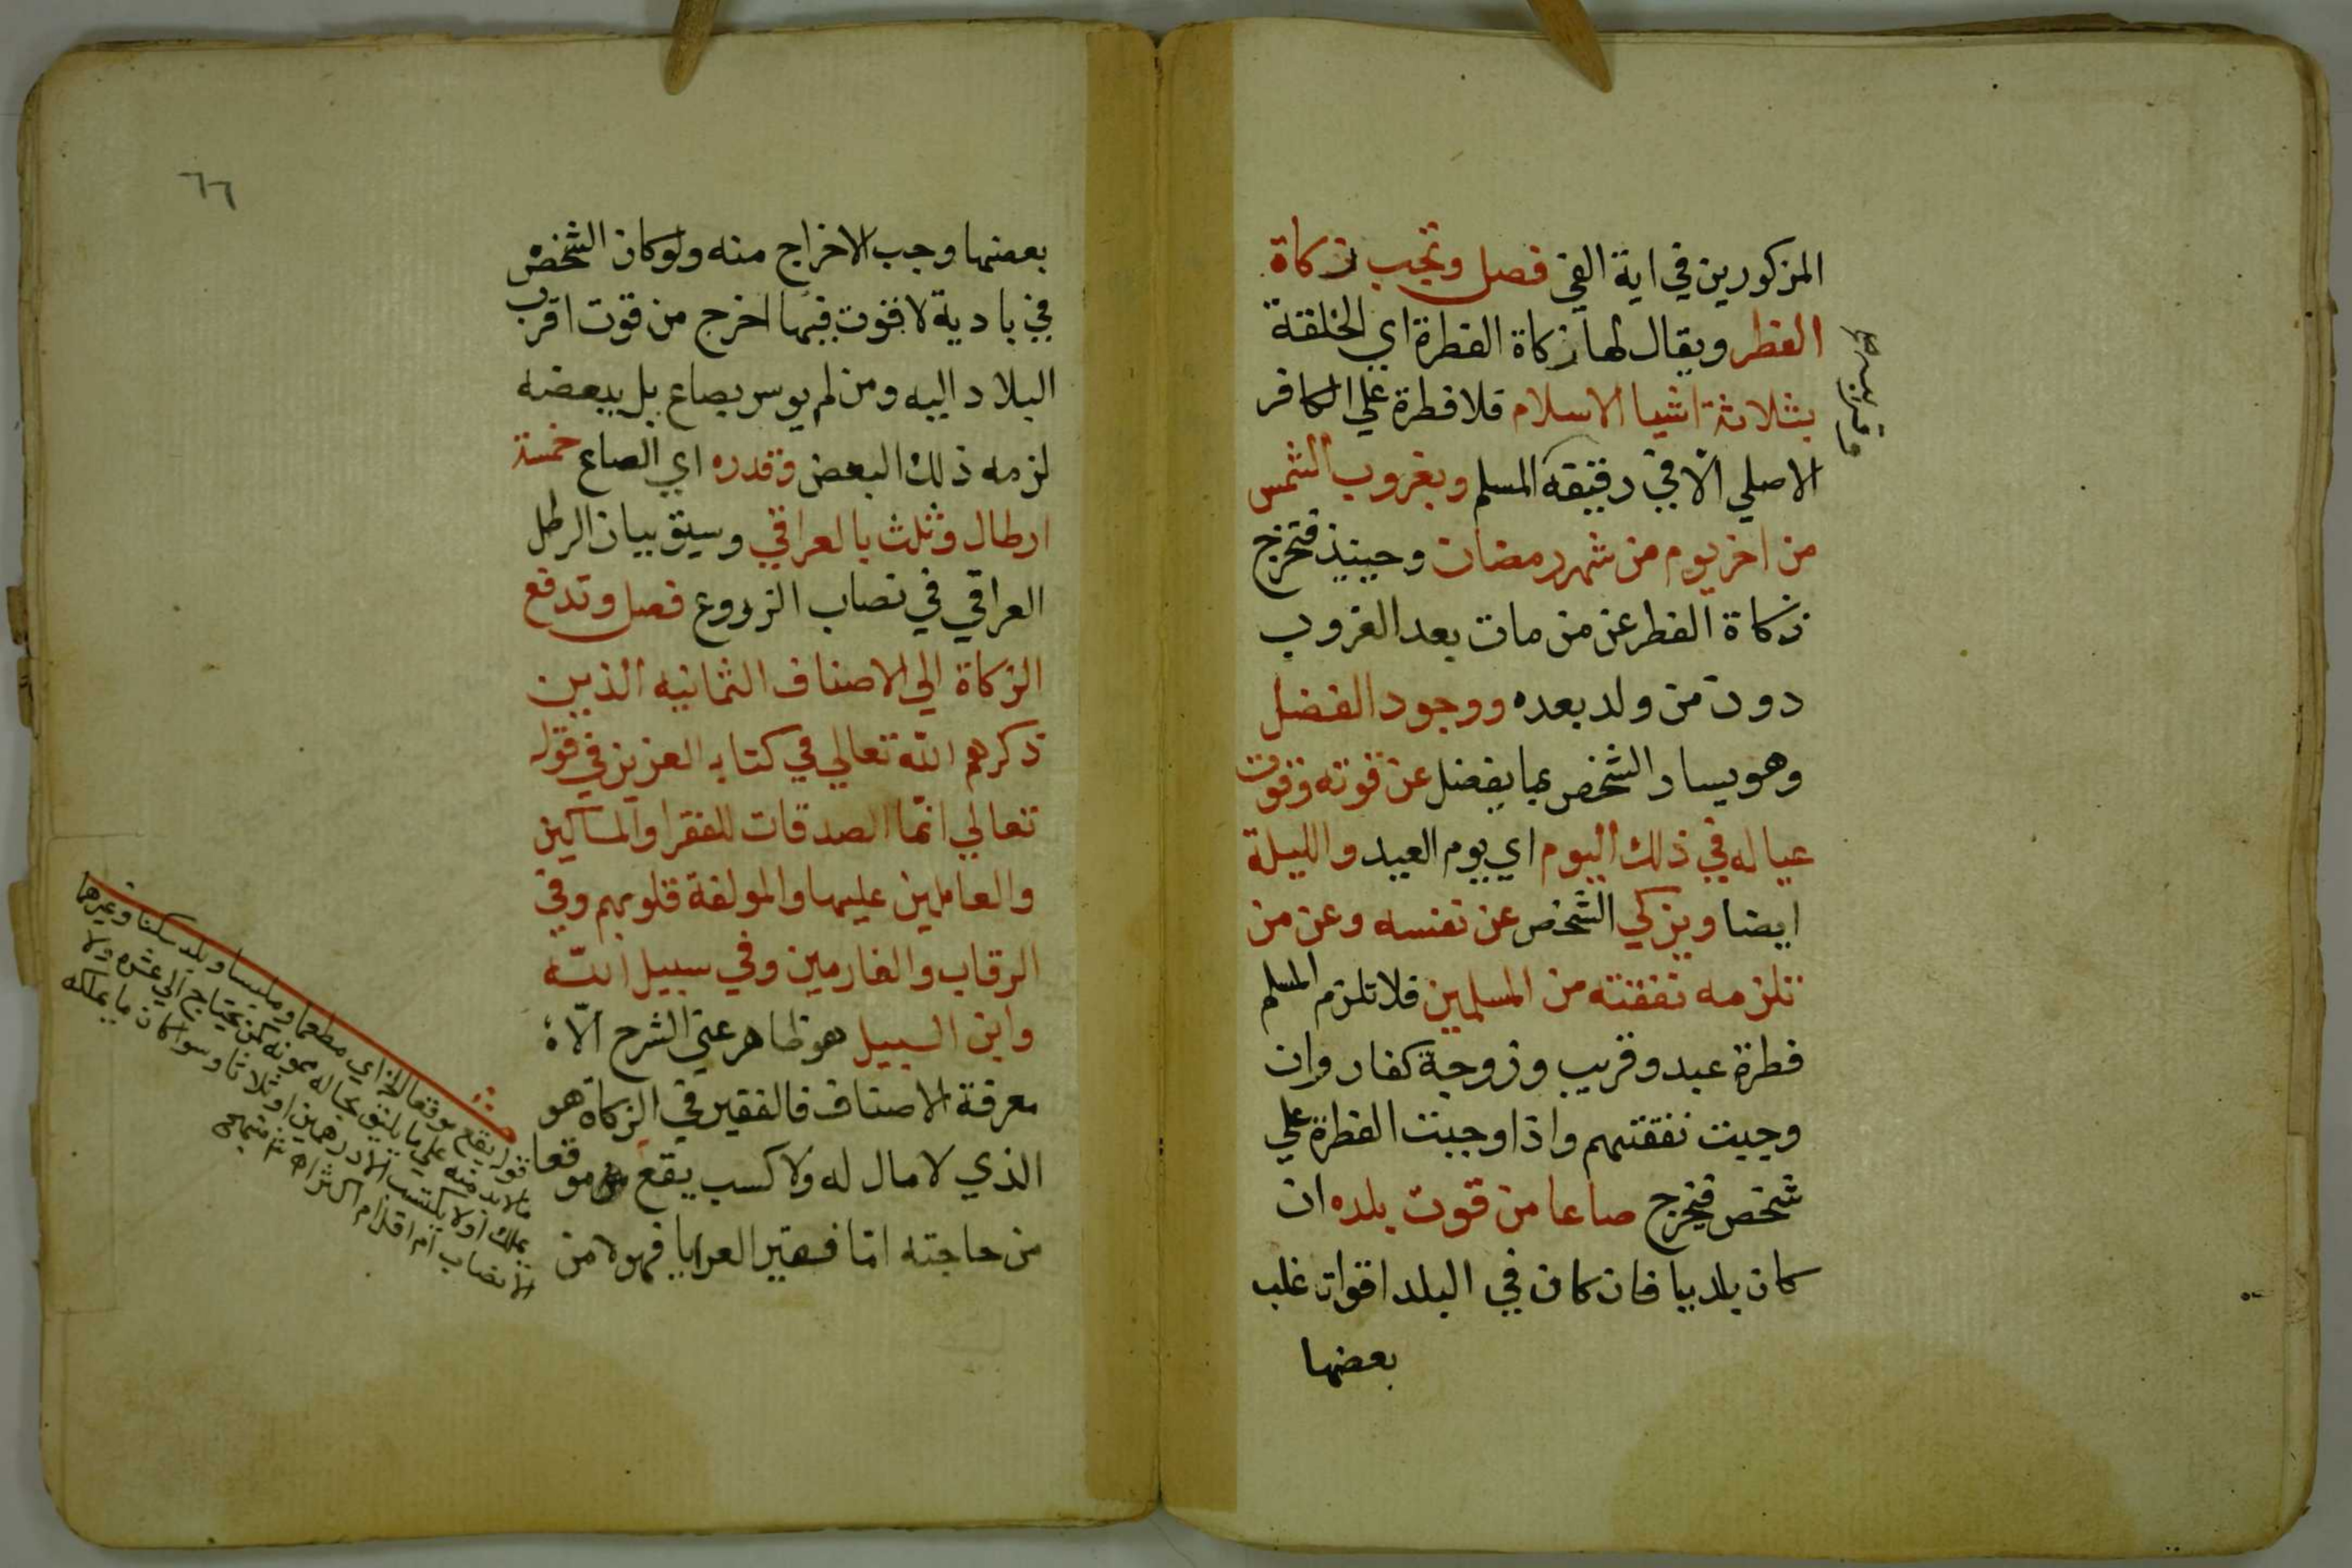 المزكورين في اية الفي فصل وتجب زكاة
الفطر ويقال لها زكاة الفطرة اي الخلقة
بثلاثة اشيا الاسلام فلا فطرة علي الكافر
الاصلي الا في رقيقه المسلم وبغروب الشمس
من اخر يوم من شهر رمضان وحينيذ فتخرج
زكاة الفطر عن من مات بعد الغروب
دون من ولد بعده ووجود الفضل
وهو يسار الشخص بما يفضل عن قوته وقوت
عياله في ذلك اليوم اي يوم العيد والليلة
ايضا ويزكي الشخص عن نفسه وعن من
تلزمه نفقته من المسلمين فلا تلزم المسلم
فطرة عبد وقريب وزوجة كفار وان
وجبت نفقتهم واذا وجبت الفطرة علي
شخص فيخرج صاعا من قوت بلده ان
كان بلديا فان كان في البلد اقوات غلب
بعضها
وقريبه
٦٦
بعضها وجب الاخراج منه ولو كان الشخص
في بادية لا قوت فيها اخرج من قوت اقرب
البلاد اليه ومن لم يوسر بصاع بل ببعضه
لزمه ذلك البعض وقدره اي الصاع خمسة
ارطال وثلث بالعراقي وسبق بيان الرطل
العراقي في نصاب الزروع فصل وتدفع
الزكاة الي الاصناف الثمانيه الذين
ذكرهم الله تعالي في كتابه العزيز في قوله
تعالي انما الصدقات للفقرا والمساكين
والعاملين عليها والمولفة قلوبهم وفي
الرقاب والغارمين وفي سبيل الله
وابن السبيل هو ظاهر غني الشرح الا
معرفة الاصناف فالفقير في الزكاة هو
الذي لا مال له ولا كسب يقع موقعا
من حاجته اما فقير العرايا فهو لا من
قوله يقع موقعا الخ اي مطعما وملبسا وبلد سكنا وغيرها
مما لابد منه علي ما يليق بحاله بمونه كمن يحتاج الي عشره ولا
يملك او لا يكتسب الا درهمين او ثلاثا وسوا كان ما يملكه
الا نصاب ام اقل ام اكثر اه